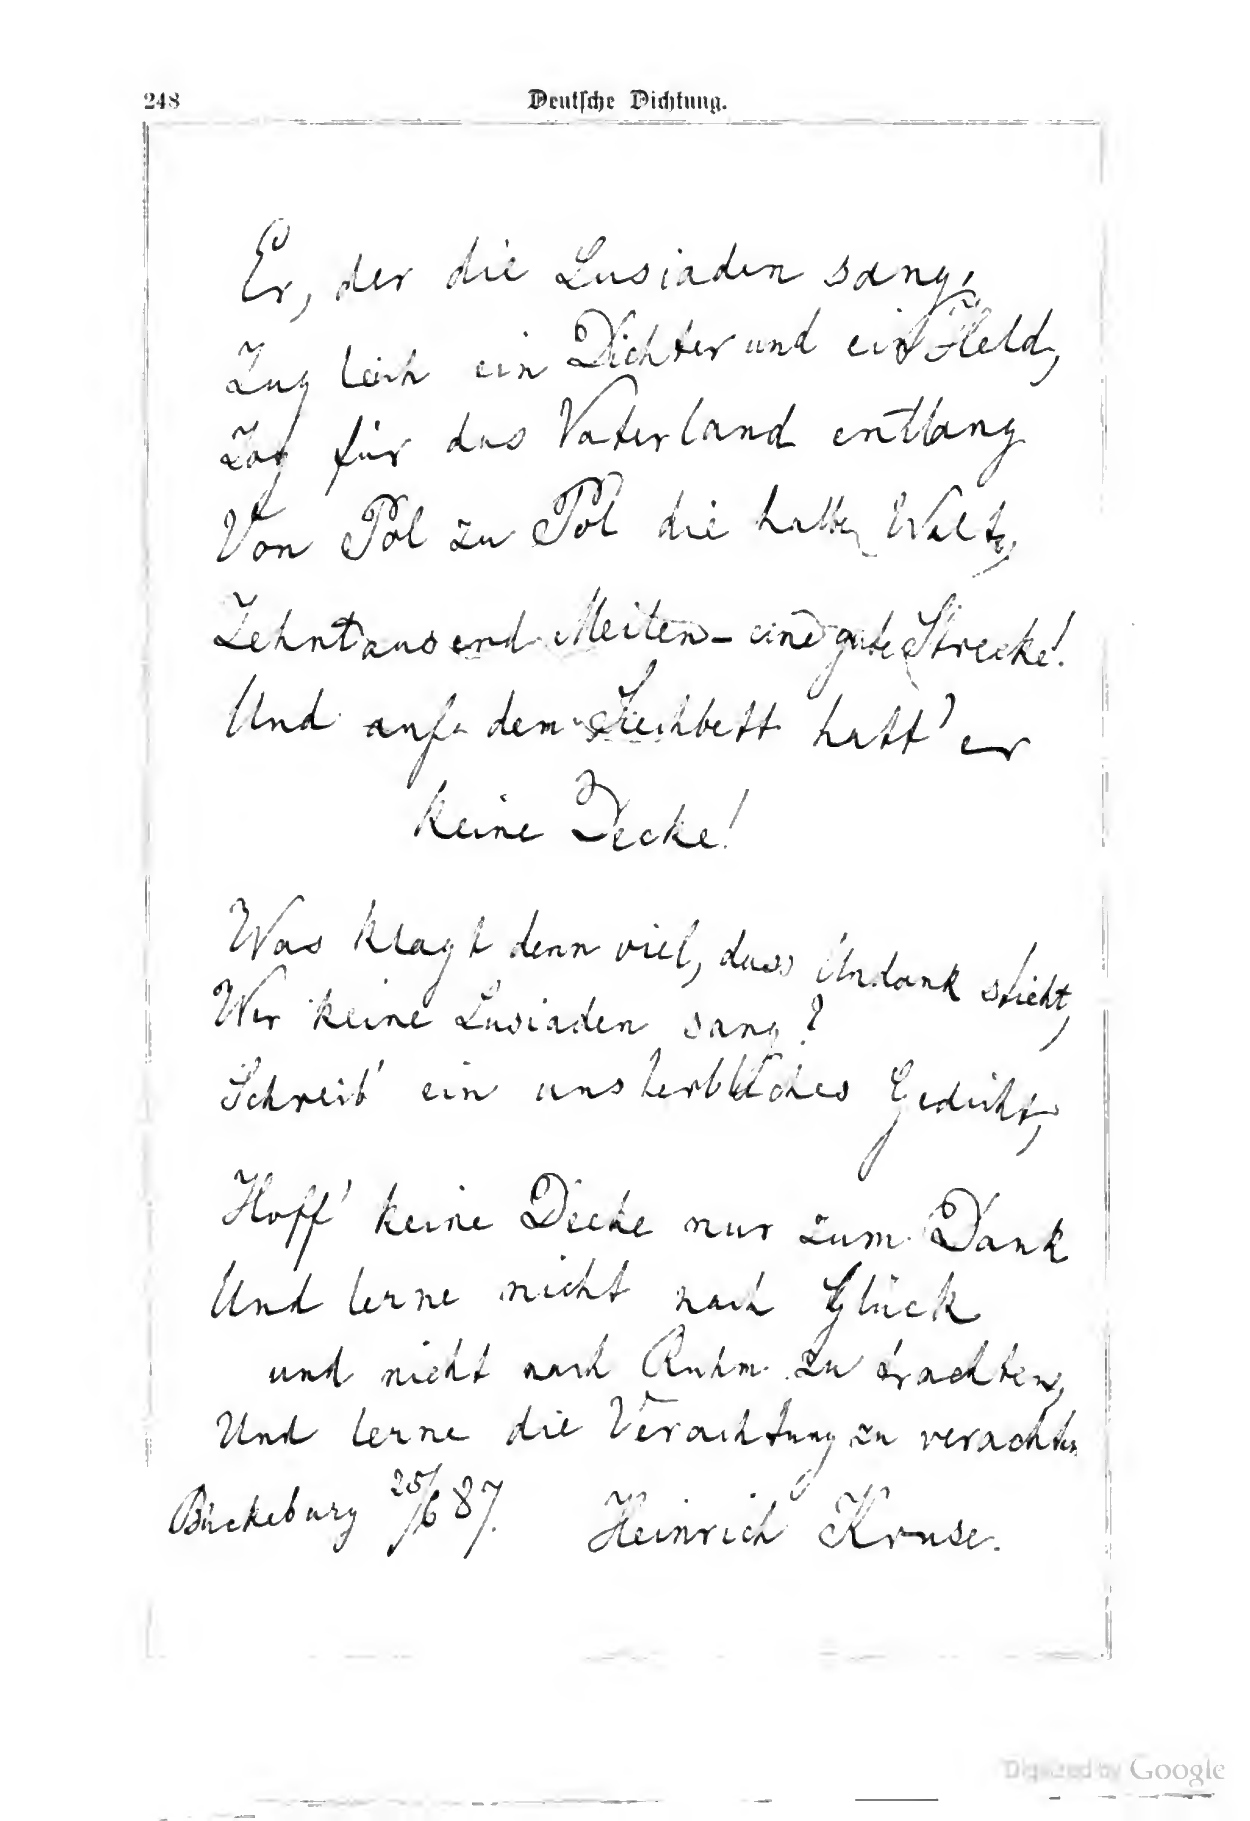 248
Deutsche Dichtung.
Er, der die Lusiaden sang,
Zugleich ein Dichter und ein Held,
Zog für das Vaterland entlang
Von Pol zu Pol die halbe Welt,
Zehntausend Meilen – eine gute Strecke!
Und auf dem Siechbett hatt' er
keine Decke!
Was klagt denn viel, dass Undank sticht,
Wer keine Lusiaden sang?
Schreib' ein unsterbliches Gedicht,
Hoff' keine Decke nur zum Dank
Und lerne nicht nach Glück
und nicht nach Ruhm zu trachten,
Und lerne die Verachtung zu verachten
Bückeburg 25/6 87. Heinrich Kruse.
Digitized by Google